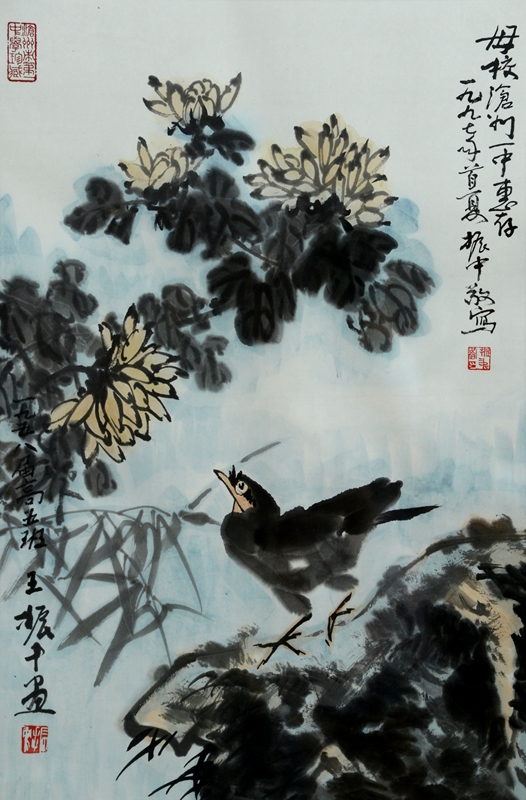 母校滄州一中惠存
一九九七年首夏 振中敬寫
一九五八届高五班 王振中画